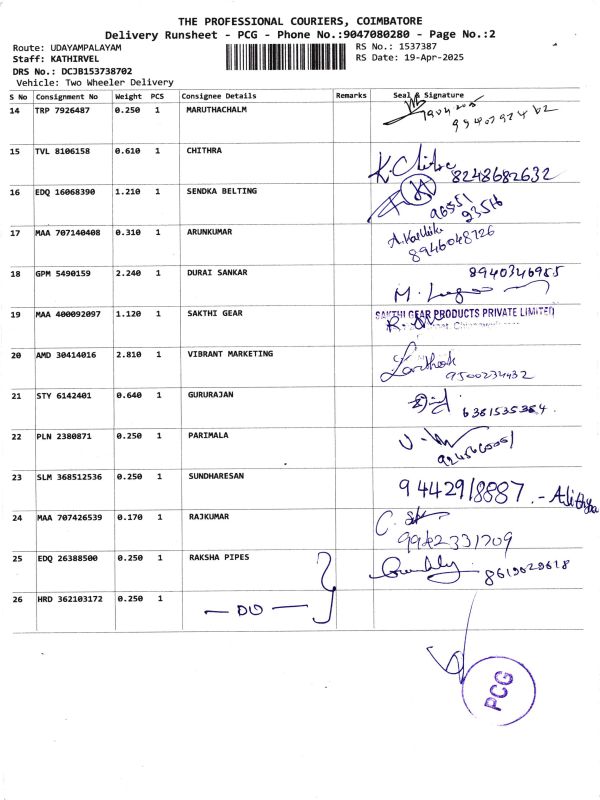 THE PROFESSIONAL COURIERS, COIMBATORE
Delivery Runsheet - PCG - Phone No.:9047080280 - Page No.:2
Route: UDAYAMPALAYAM
RS No.: 1537387
Staff: KATHIRVEL
RS Date: 19-Apr-2025
DRS No.: DCJB153738702
Vehicle: Two Wheeler Delivery
S No Consignment No Weight PCS Consignee Details Remarks Seal & Signature
14 TRP 7926487 0.250 1 MARUTHACHALM
15 TVL 8106158 0.610 1 CHITHRA K. Chithra
8248682632
16 EDQ 16068390 1.210 1 SENDKA BELTING
96551
93516
17 MAA 707140408 0.310 1 ARUNKUMAR A. Karthik
8946048726
18 GPM 5490159 2.240 1 DURAI SANKAR 8940346985
19 MAA 400092097 1.120 1 SAKTHI GEAR SAKTHI GEAR PRODUCTS PRIVATE LIMITED
20 AMD 30414016 2.810 1 VIBRANT MARKETING Karthik
9500234432
21 STY 6142401 0.640 1 GURURAJAN
6381535384
22 PLN 2380871 0.250 1 PARIMALA
23 SLM 368512536 0.250 1 SUNDHARESAN 9442918887 -
24 MAA 707426539 0.170 1 RAJKUMAR
9942331709
25 EDQ 26388500 0.250 1 RAKSHA PIPES
8619029618
26 HRD 362103172 0.250 1 — DO —
PCG